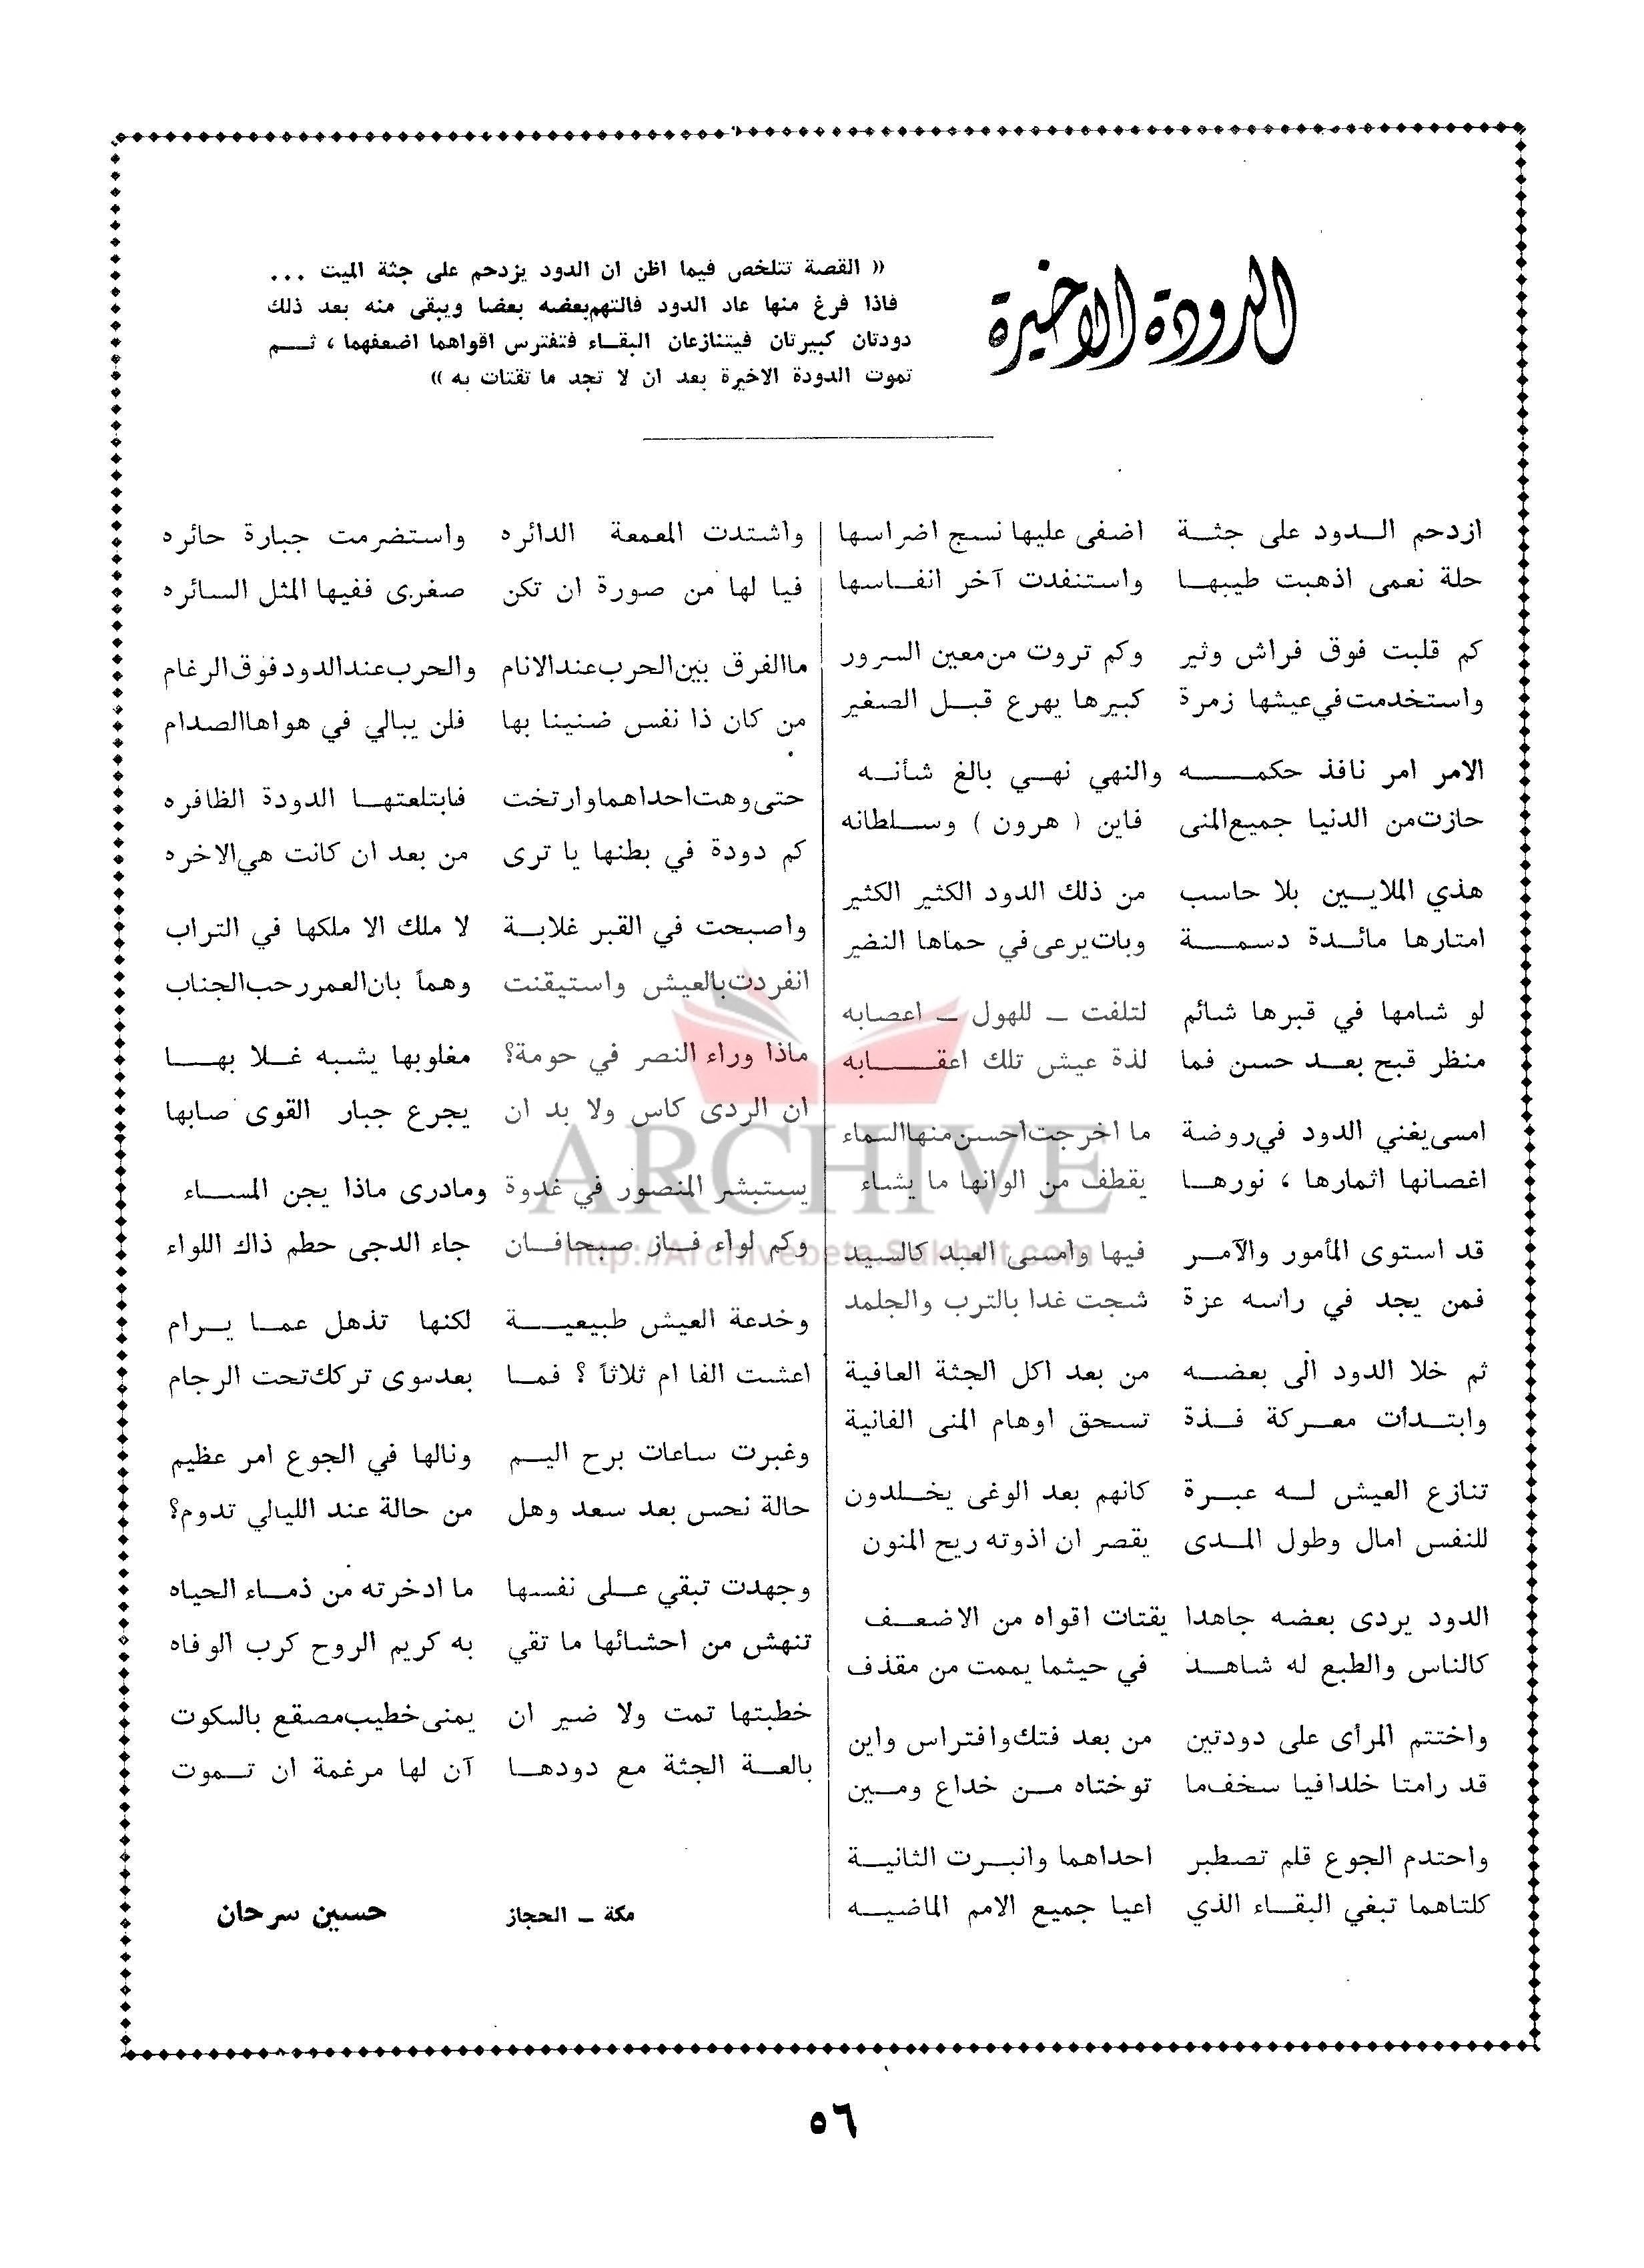 الدودة الاخيرة
(( القصة تتلخص فيما اظن ان الدود يزدحم على جثة الميت ...
فاذا فرغ منها عاد الدود فالتهم بعضه بعضا ويبقى منه بعد ذلك
دودتان كبيرتان فيتنازعان البقاء فتفترس اقواهما اضعفهما ، ثم
تموت الدودة الاخيرة بعد ان لا تجد ما تقتات به ))
ازدحم الدود على جثة اضفى عليها نسج اضراسها
حلة نعمى اذهبت طيبها واستنفدت آخر انفاسها
كم قلبت فوق فراش وثير وكم تروت من معين السرور
واستخدمت في عيشها زمرة كبيرها يهرع قبل الصغير
الامر امر نافذ حكمه والنهي نهي بالغ شأنه
حازت من الدنيا جميع المنى فاين ( هرون ) وسلطانه
هذي الملايين بلا حاسب من ذلك الدود الكثير الكثير
امتارها مائدة دسمة وبات يرعى في حماها النضير
لو شامها في قبرها شائم لتلفت ـ للهول ـ اعصابه
منظر قبح بعد حسن فما لذة عيش تلك اعقابه
امسى يغني الدود في روضة ما اخرجت احسن منها السماء
اغصانها اثمارها ، نورها يقطف من الوانها ما يشاء
قد استوى المأمور والآمر فيها وامسى العبد كالسيد
فمن يجد في راسه عزة شجت غدا بالترب والجلمد
ثم خلا الدود الى بعضه من بعد اكل الجثة العافية
وابتدأت معركة فذة تسحق اوهام المنى الفانية
تنازع العيش له عبرة كانهم بعد الوغى يخلدون
للنفس امال وطول المدى يقصر ان اذوته ريح المنون
الدود يردى بعضه جاهدا يقتات اقواه من الاضعف
كالناس والطبع له شاهد في حيثما يممت من مقذف
واختتم المرأى على دودتين من بعد فتك وافتراس واين
قد رامتا خلدا فيا سخف ما توختاه من خداع ومين
واحتدم الجوع قلم تصطبر احداهما وانبرت الثانية
كلتاهما تبغي البقاء الذي اعيا جميع الامم الماضيه
واشتدت المعمعة الدائره واستضرمت جبارة حائره
فيا لها من صورة ان تكن صغرى ففيها المثل السائره
ما الفرق بين الحرب عند الانام والحرب عند الدود فوق الرغام
من كان ذا نفس ضنينا بها فلن يبالي في هواها الصدام
حتى وهت احداهما وارتخت فابتلعتها الدودة الظافره
كم دودة في بطنها يا ترى من بعد ان كانت هي الاخره
واصبحت في القبر غلابة لا ملك الا ملكها في التراب
انفردت بالعيش واستيقنت وهماً بان العمر رحب الجناب
ماذا وراء النصر في حومة؟ مغلوبها يشبه غلابها
ان الردى كاس ولا بد ان يجرع جبار القوى صابها
يستبشر المنصور في غدوة ومادرى ماذا يجن المساء
وكم لواء فاز صبحا فان جاء الدجى حطم ذاك اللواء
وخدعة العيش طبيعية لكنها تذهل عما يرام
اعشت الفا ام ثلاثاً ؟ فما بعد سوى تركك تحت الرجام
وغبرت ساعات برح اليم ونالها في الجوع امر عظيم
حالة نحس بعد سعد وهل من حالة عند الليالي تدوم؟
وجهدت تبقي على نفسها ما ادخرته من ذماء الحياه
تنهش من احشائها ما تقي به كريم الروح كرب الوفاه
خطبتها تمت ولا ضير ان يمنى خطيب مصقع بالسكوت
بالعة الجثة مع دودها آن لها مرغمة ان تموت
مكة ـ الحجاز حسين سرحان
٥٦
ARCHIVE
http://Archivebeta.Sakhrit.com